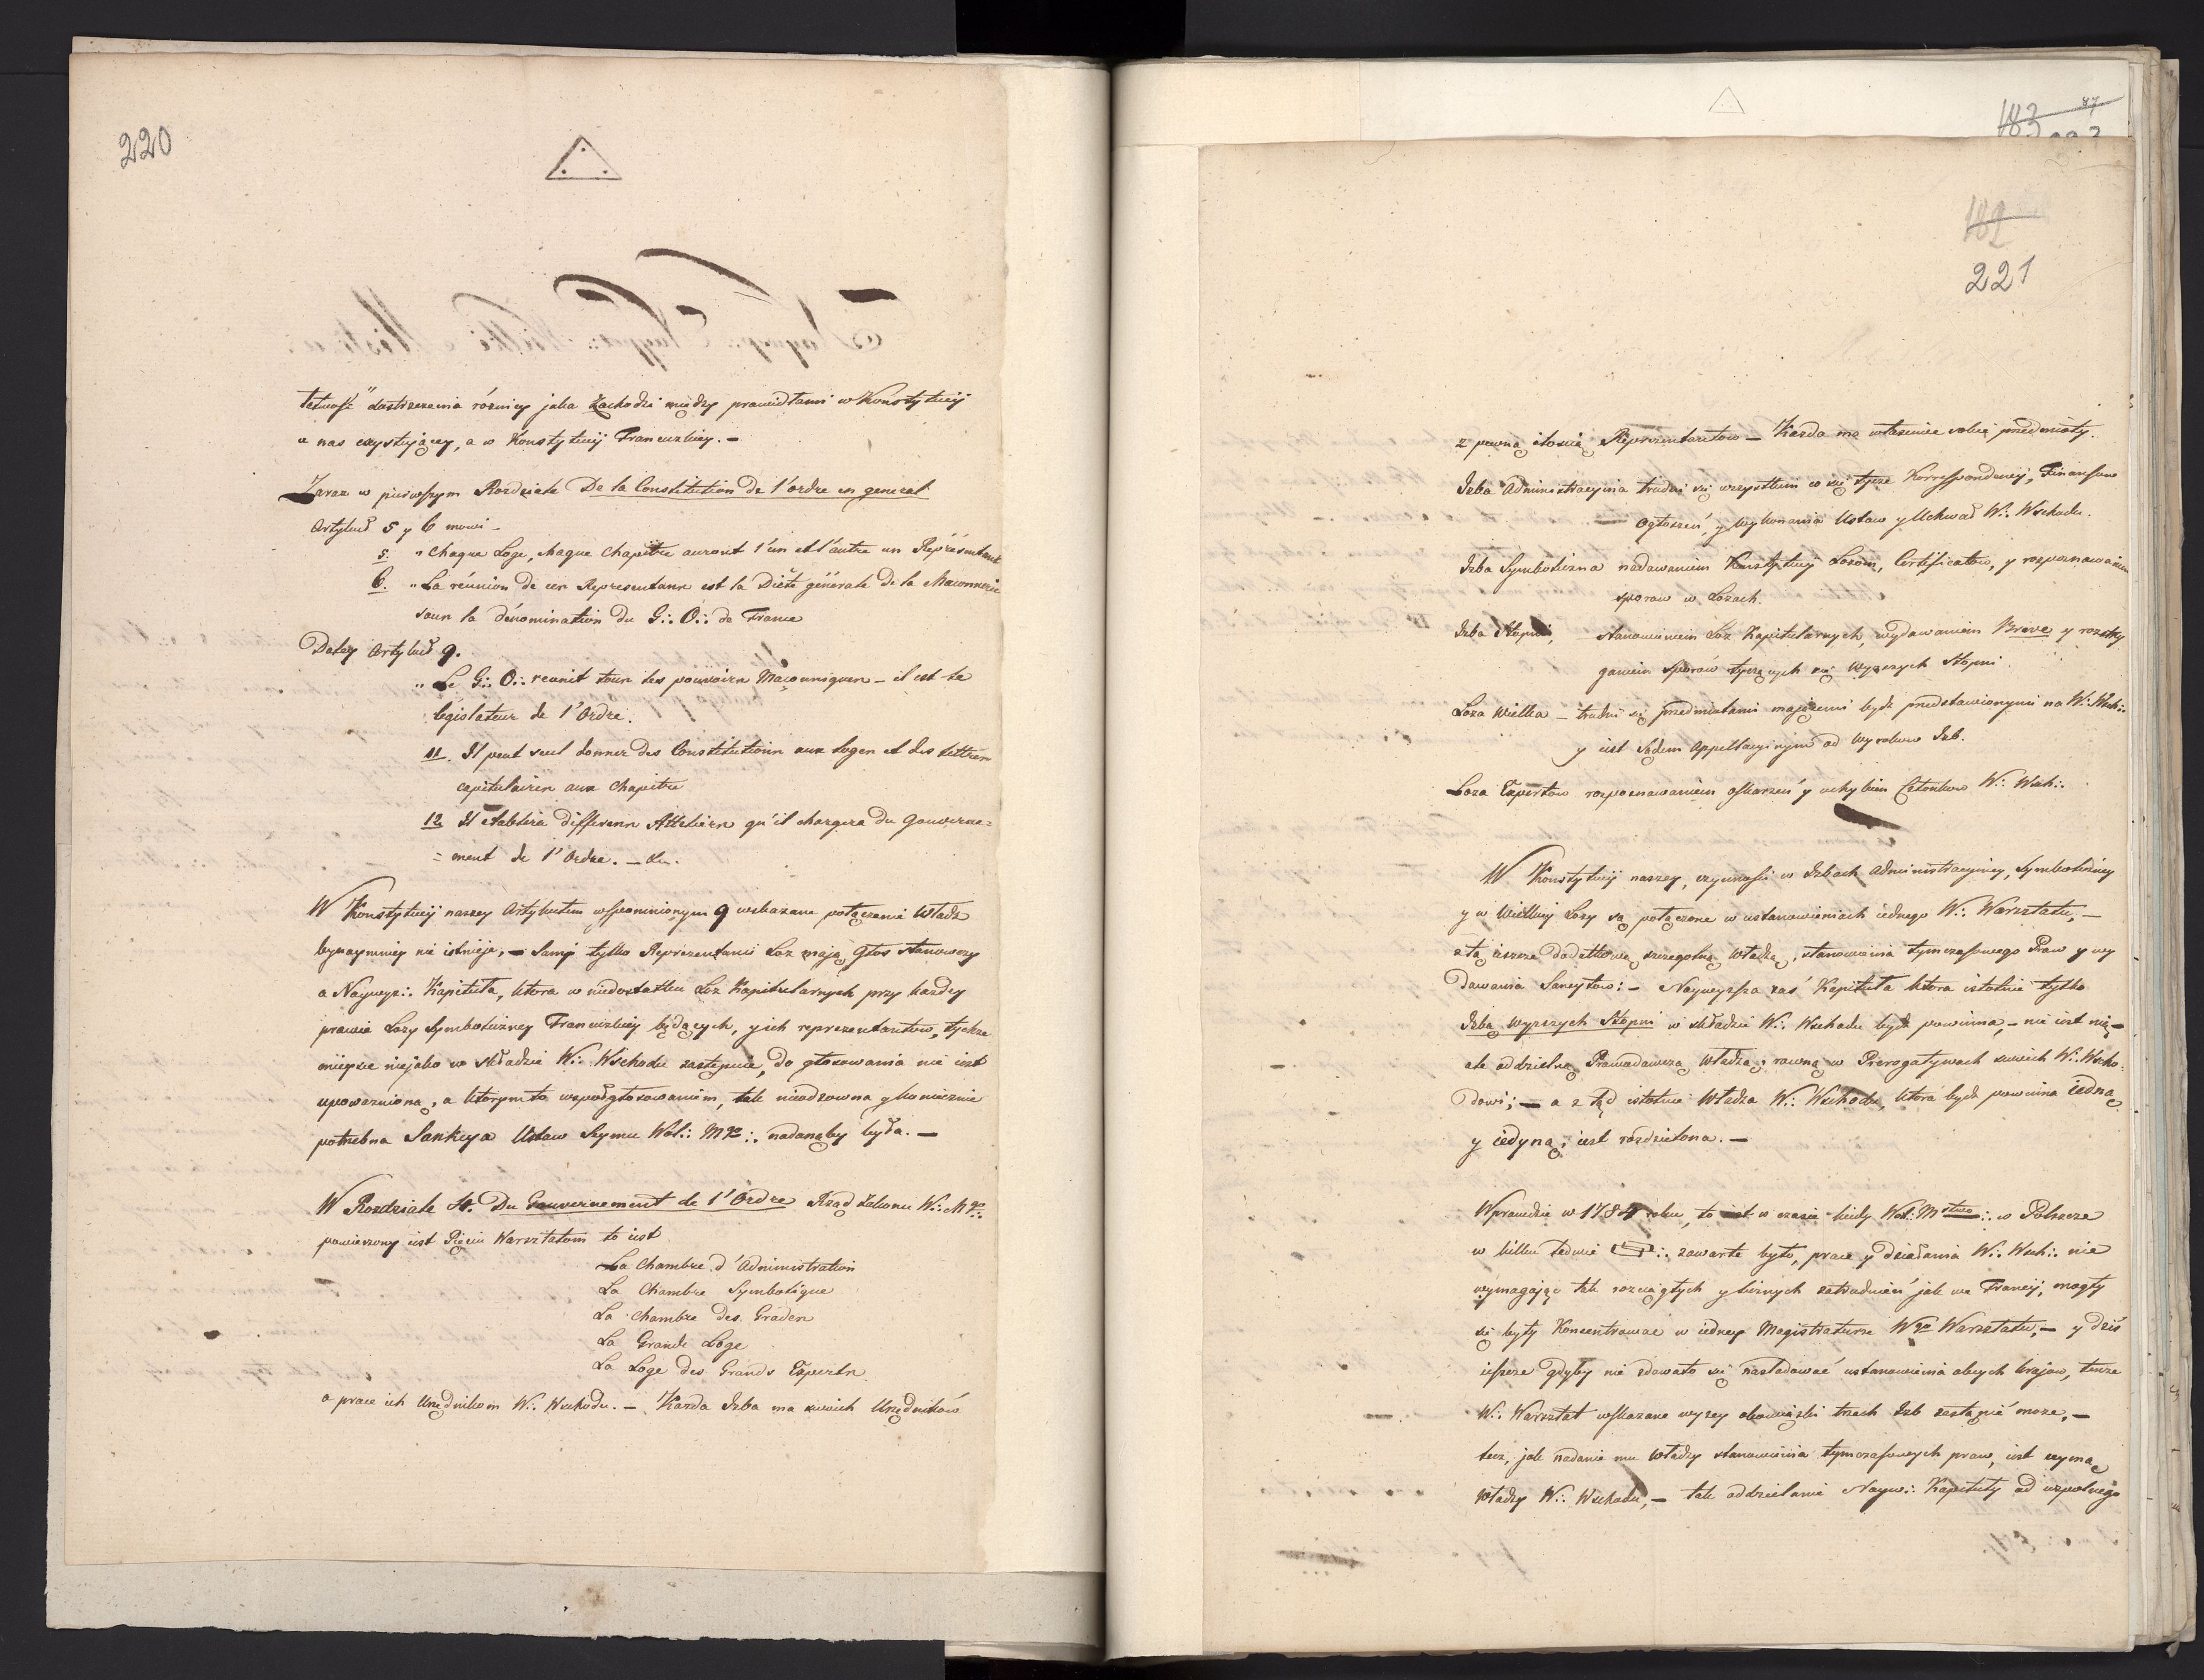 220
twość dostrzeżenia różnicy jaka Zachodzi między prawidłami w Konstytucij
u nas exystującey, a w Konstytucij Francuzkiey. –
Zaraz w pierwszym Rozdziale De la Constitution de l'ordre en general
Artykuł 5 y 6 mowi –
5. „ Chaque Loge, chaque Chapitre auront l'un et l'autre un Représentant
6. „ La réunion de ces Representans est la Diéte générale de la Maconnerie
sous la dénomination du G∴ O∴ de France
Daley Artykuł 9.
„ Le G∴ O∴ reunit tous les pouvoirs Maçonniques – il est le
legislateur de l'Ordre.
11. Il peut seul donner des Constitutions aux loges et des lettres
capitulaires aux Chapitre
12 Il etablira differens Atteliers qu'il chargera du Gouverne=
=ment de l'Ordre. –
W Konstytucij naszey Artykułem wspomnionym 9 wskazane połączenie Władz
bynaymniey nie istnieje, – Sami tylko Reprezentanci Loz mają Głos stanowczy
a Naywyz∴ Kapituła, ktora w niedostatku Loz Kapitularnych przy każdey
prawie Lozy Symboliczney Francuzkiey będących, y ich reprezentantow, tychze
mieysce niejako w składzie W∴ Wschodu zastępuie, do głosowania nie iest
upowazniona, a ktorym to wspołgłosowaniem, tak nieodzowna y koniecznie
potrzebna Sankcya Ustaw Seymu Wol∴ M∴ nadanąby była. –
W Rozdziale 4. Du Gouvernement de l'Ordre Rząd Zakonu W∴ M∴
powierzony iest Pięciu Warsztatom to iest
La Chambre d'Administration
La Chambre Symbolique
La Chambre des Grades
La Grande Loge
La Loge des Grands Experts
a prace ich Urzędnikom W∴ Wschodu. – Kazda Izba ma swoich Urzędników
183 87
182
221
z pewną ilością Reprezentantow – Kazda ma właściwe sobie przedmioty.
Izba Administracyina trudni się wszystkiem co się tycze Korrespondencij, Finansow
Ogłoszeń, y wykonania Ustaw y Uchwał W∴ Wschodu.
Izba Symboliczna nadawaniem Konstytucij Lozom, Certificatow, y rozpoznawaniem
sporow w Lozach.
Izba Stopni, stanowieniem Loz Kapitularnych, wydawaniem Breve y rozstrzy
ganiem sporów tyczących się wyzszych Stopni.
Loza Wielka – trudni się przedmiotami mającemi bydz przedstawionymi na W∴ Wsch∴
y iest Sądem Appellacyinym od Wyrokow Izb.
Loza Expertow rozpoznawaniem oskarzeń y uchybien Członkow W∴ Wsch∴
W Konstytucij naszey, czynności w Izbach Administracyiney, Symboliczney
y w Wielkiey Lozy są połączone w ustanowieniach iednego W∴ Warsztatu, –
z tą ieszcze dodatkową szczegolną Władzą, stanowienia tymczasowego Praw y wy
dawania Sancytow: – Naywyzsza zaś Kapituła ktora istotnie tylko
Izbą wyzszych Stopni w składzie W∴ Wschodu bydz powinna, – nie iest nią –
ale oddzielną Prawodawczą Władzą; rowną w Prerogatywach swoich W∴ Wscho-
dowi; – a z tąd istotnie Władza W∴ Wschodu, ktora bydz powinna iedną
y iedyną; iest rozdzielona. –
Wprawdzie w 1784 roku, to iest w czasie kiedy Wol: Mstwo∴ w Polszcze
w kilku ledwie ∴ zawarte było, prace y działania W∴ Wsch∴ nie
wymagając tak rozciągłych y licznych zatrudnień jak we Francij, mogły
się były Koncentrowac w iedney Magistraturze Wgo Warsztatu, – y dziś
ieszcze gdyby nie zdawało się nasladować ustanowienia obcych krajow, tenze
W∴ Warsztat wskazane wyzey obowiązki trzech Izb zastąpić moze, –
lecz, jak nadanie mu Władzy stanowienia tymczasowych praw, iest uymą
Władzy W∴ Wschodu, – tak oddzielanie Nayw∴ Kapituły od wspolnego